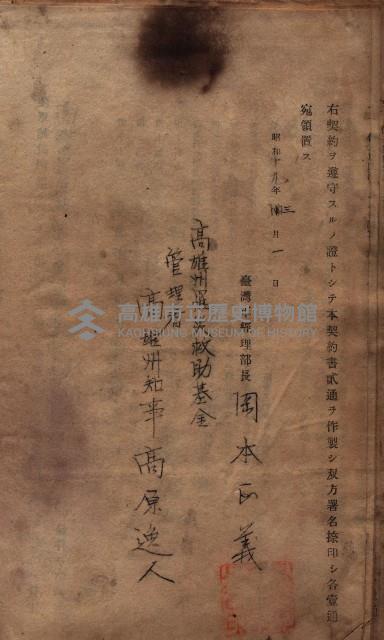 右契約ヲ遵守スルノ證トシテ本契約書貳通ヲ作製シ双方署名捺印シ各壹通
宛領置ス
昭和十九年三月一日
臺灣軍經理部長 岡本正義
高雄州罹災救助基金
管理者
高雄州知事 高原逸人
高雄市立歷史博物館
KAOHSIUNG MUSEUM OF HISTORY